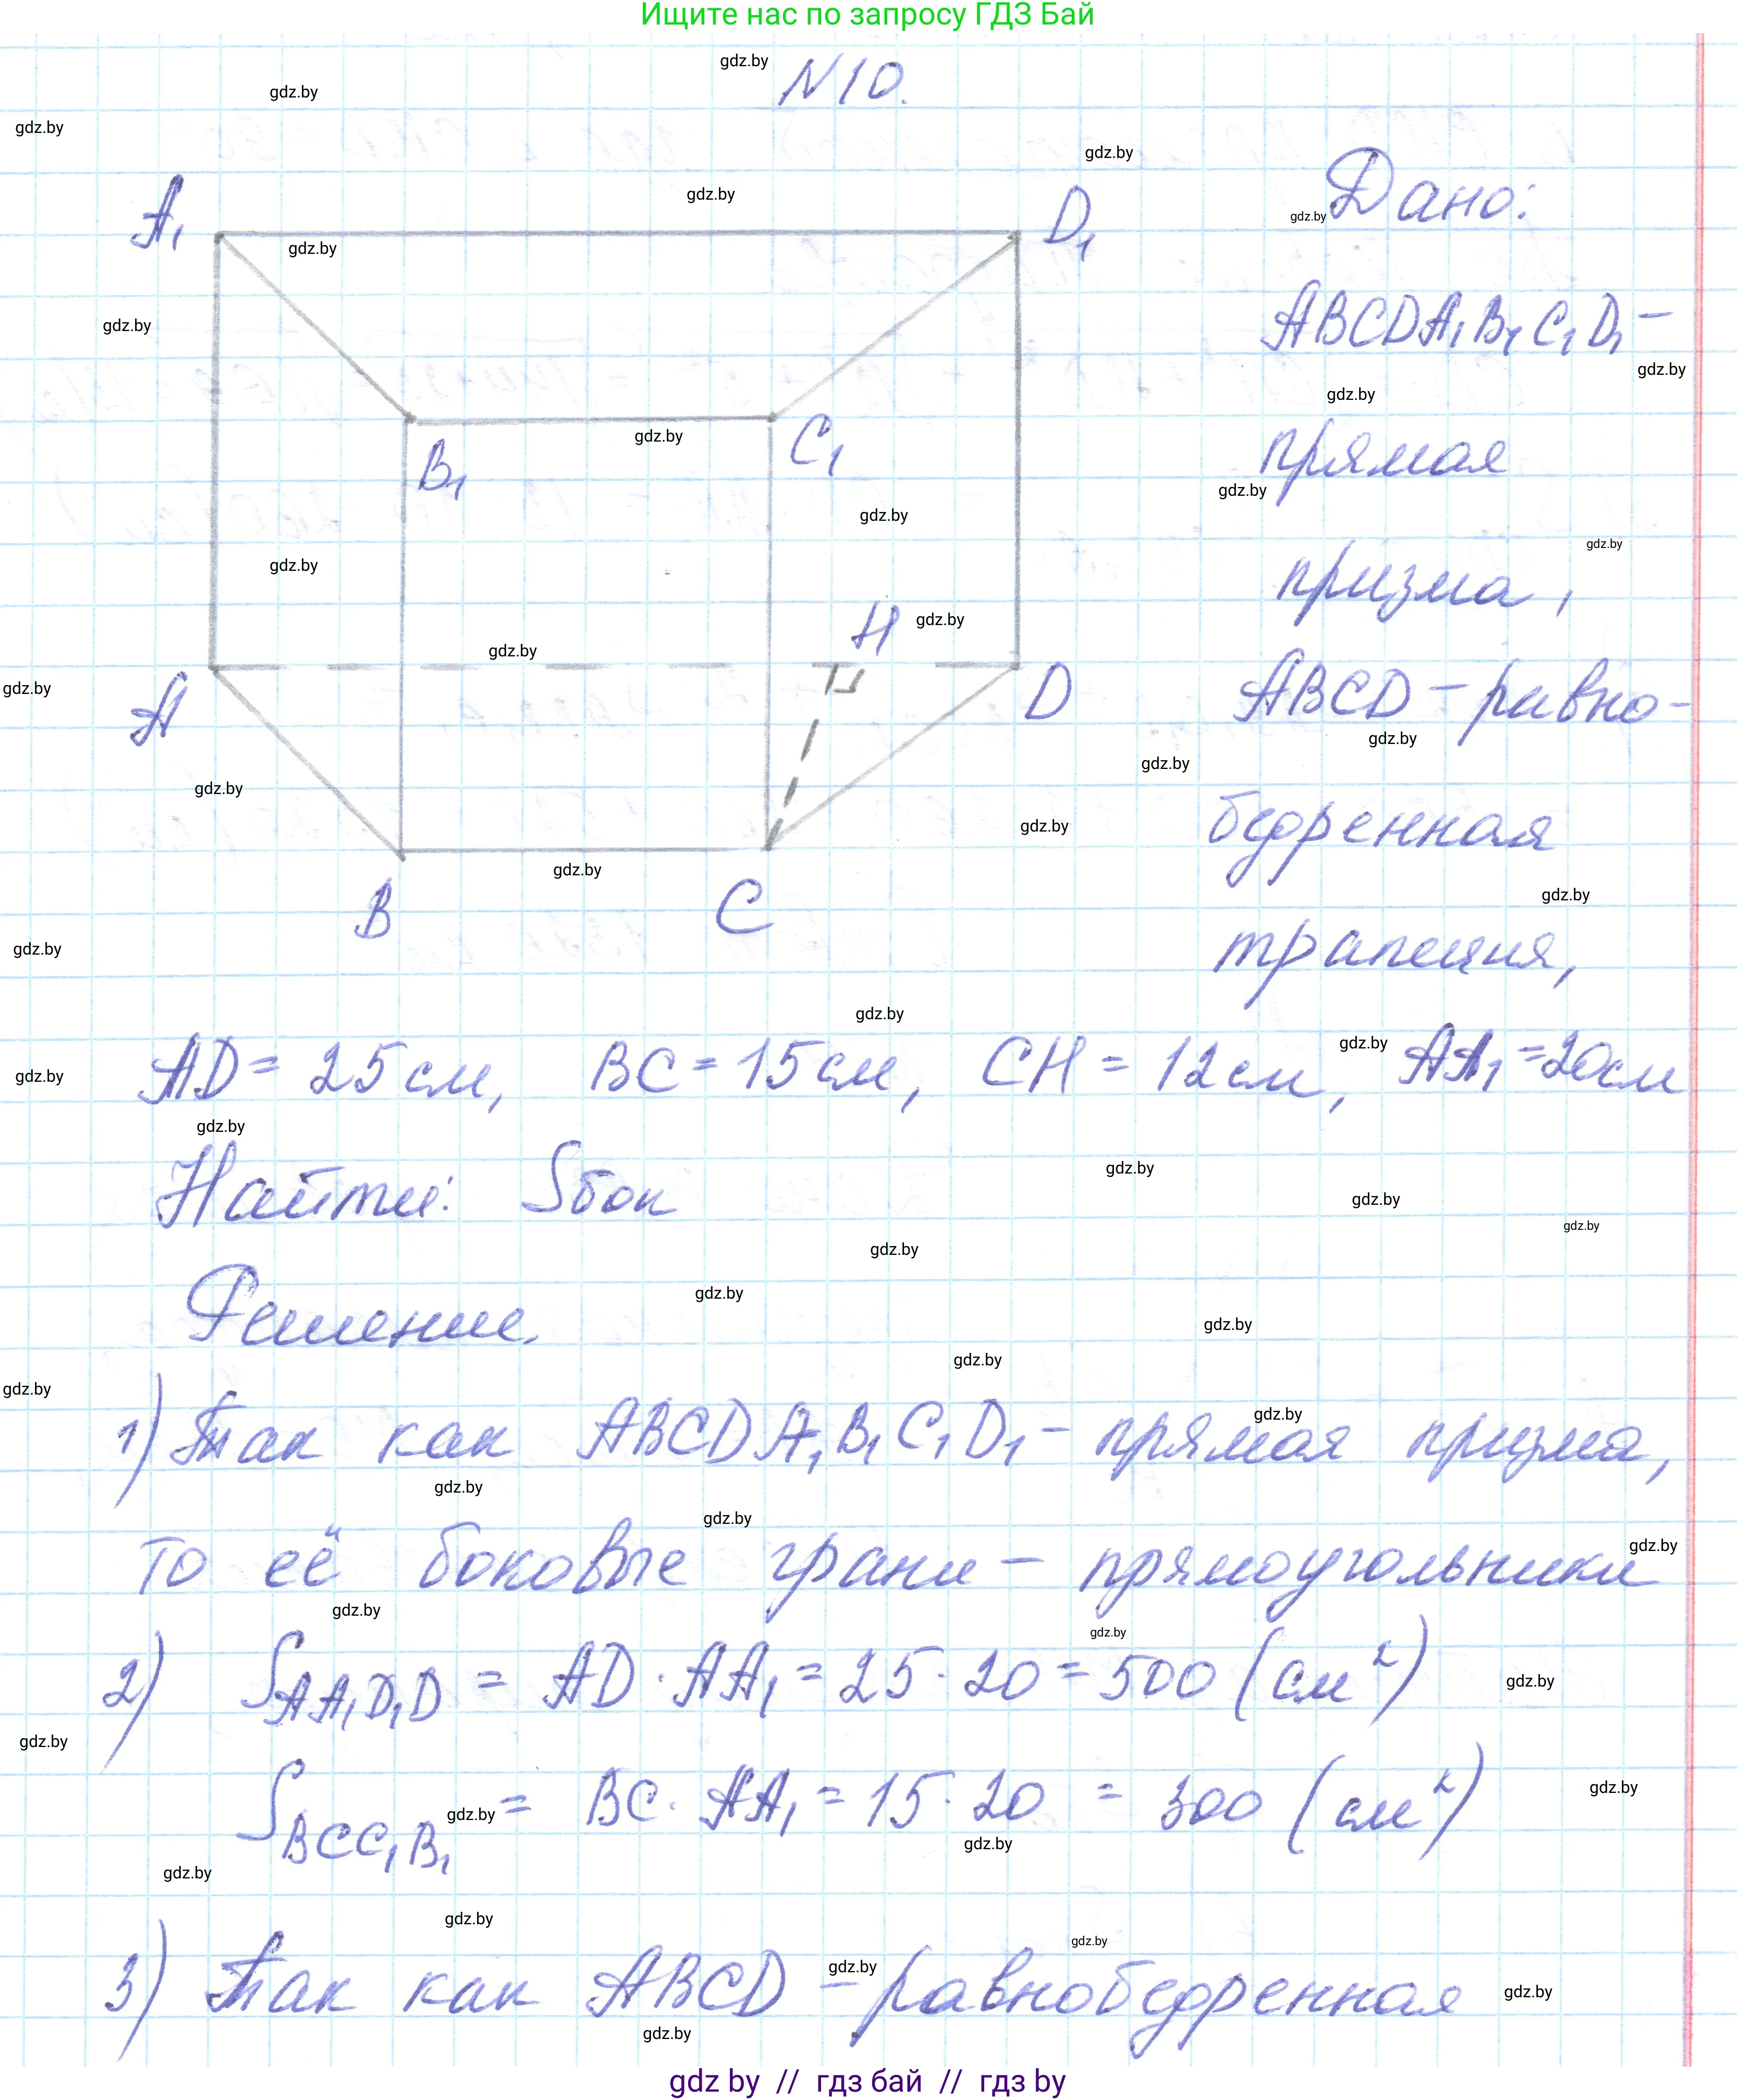 Ищите нас по запросу ГДЗ Бай
N10.
A₁
D₁
B₁
C₁
H
A
D
B
C
Дано:
ABCDA₁B₁C₁D₁ –
прямая
призма,
ABCD – равно-
бедренная
трапеция,
AD = 25 см, BC = 15 см, CH = 12 см, AA₁ = 20 см
Найти: Sбок
Решение.
1) Так как ABCDA₁B₁C₁D₁ – прямая призма,
то её боковые грани – прямоугольники
2) S AA₁D₁D = AD · AA₁ = 25 · 20 = 500 (см²)
S BCC₁B₁ = BC · AA₁ = 15 · 20 = 300 (см²)
3) Так как ABCD – равнобедренная
gdz by // гдз бай // гдз by